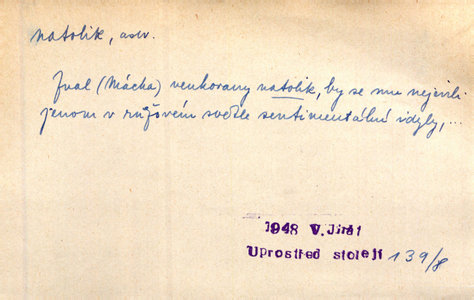 natolik, adv.
Znal (Mácha) venkovany natolik, by se mu nejevili
jenom v růžovém světle sentimentální idyly, ...
1948 V. Jirát
Uprostřed století 139/8